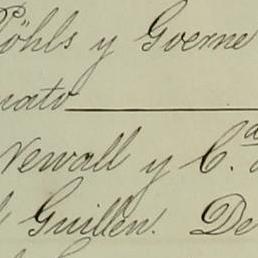 Pöhls y Goerne
uato
Newall y C.a
Guillen. De